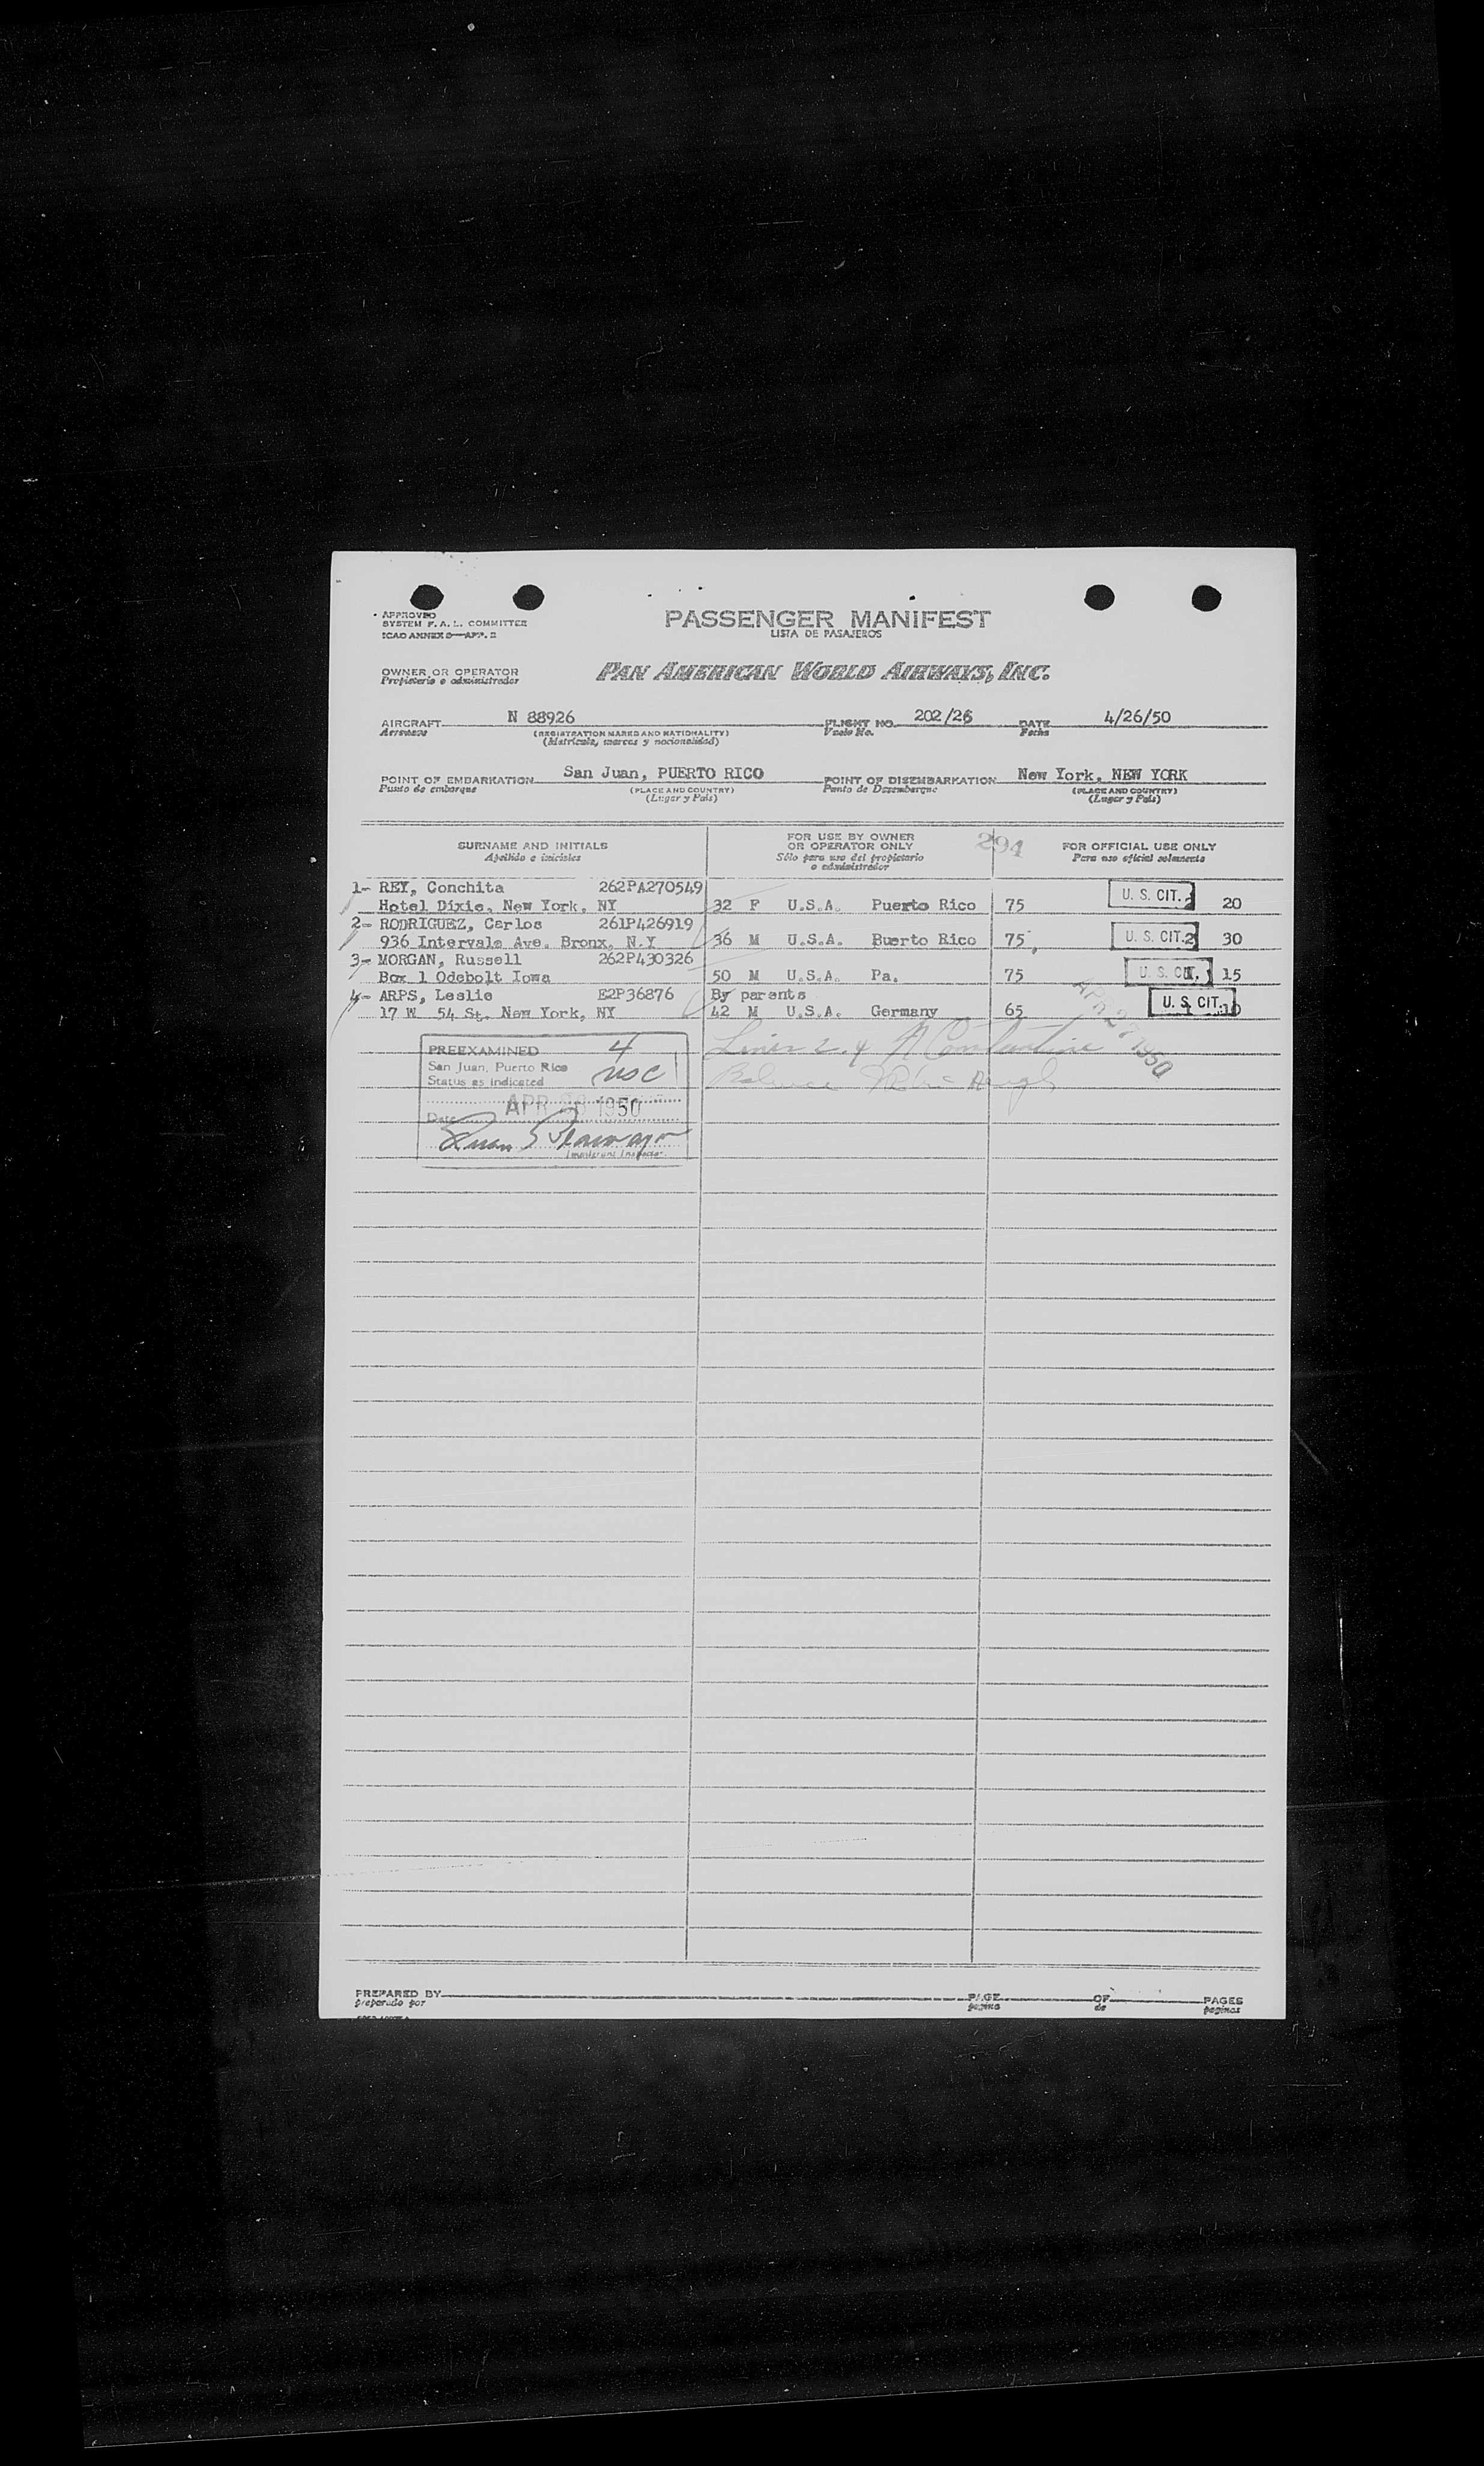 APPROVED
SYSTEM F. A. L. COMMITTEE
ICAO ANNEX 9—APP. 2
PASSENGER MANIFEST
LISTA DE PASAJEROS
OWNER OR OPERATOR
Propietario o administrador
PAN AMERICAN WORLD AIRWAYS, INC.
AIRCRAFT N 88926 FLIGHT NO. 202/26 DATE 4/26/50
Aeronave (REGISTRATION MARKS AND NATIONALITY) Vuelo No. Fecha
(Matrícula, marcas y nacionalidad)
POINT OF EMBARKATION San Juan, PUERTO RICO POINT OF DISEMBARKATION New York, NEW YORK
Punto de embarque (PLACE AND COUNTRY) Punto de Desembarque (PLACE AND COUNTRY)
(Lugar y País) (Lugar y País)
SURNAME AND INITIALS
Apellido e iniciales
FOR USE BY OWNER
OR OPERATOR ONLY
Sólo para uso del propietario
o administrador
294
FOR OFFICIAL USE ONLY
Para uso oficial solamente
1- REY, Conchita 262PA270549
Hotel Dixie, New York, NY 32 F U.S.A. Puerto Rico 75 U. S. CIT. 2 20
2- RODRIGUEZ, Carlos 261P426919
936 Intervale Ave. Bronx, N.Y 36 M U.S.A. Buerto Rico 75 U. S. CIT. 2 30
3- MORGAN, Russell 262P430326
Box 1 Odebolt Iowa 50 M U.S.A. Pa. 75 U. S. CIT. 1 15
4- ARPS, Leslie E2P36876 By parents
17 W 54 St. New York, NY 42 M U.S.A. Germany 65 U. S. CIT. 1 10
APR 27 1950
PREEXAMINED 4
San Juan, Puerto Rico
Status as indicated USC
APR 26 1950
Date
Immigrant Inspector
Lines 2.4 A Constantine
Balance
PREPARED BY PAGE OF PAGES
preparado por pagina de paginas